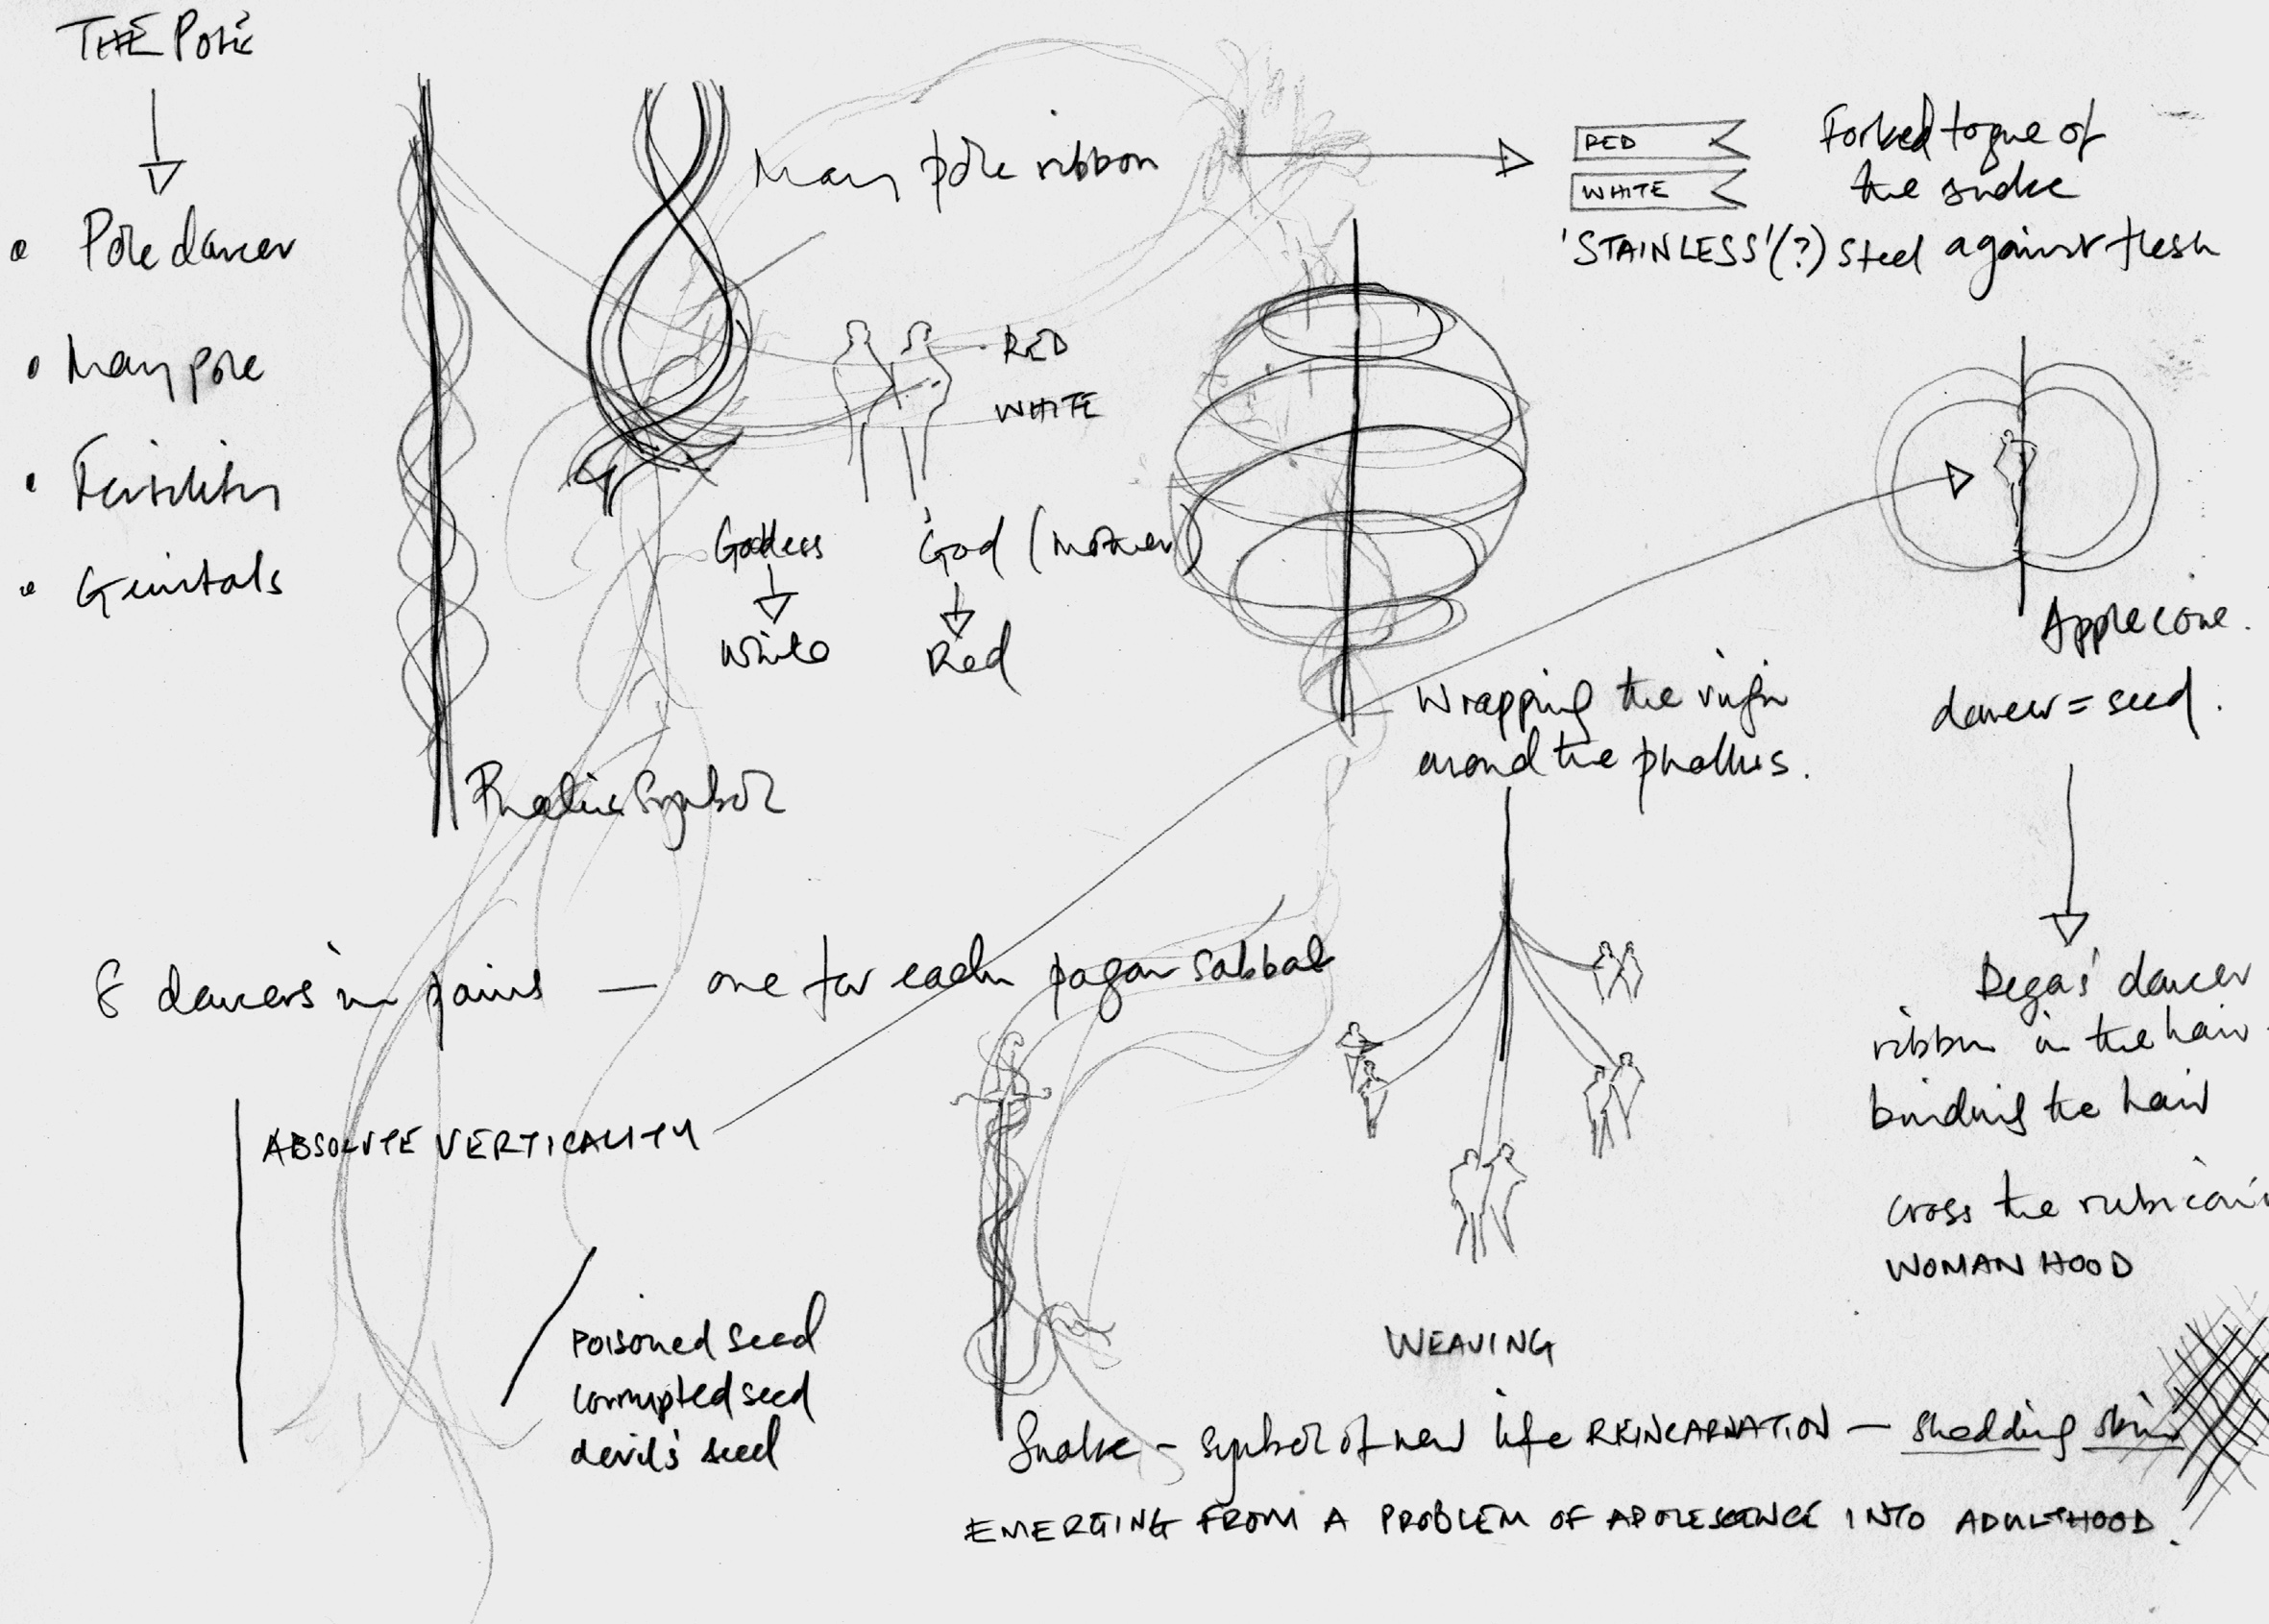 THE POLE
Pole dancer
May pole
Fertility
Genitals
May pole ribbon
RED
WHITE
Forked togue of
the snake
'STAINLESS'(?) Steel against flesh
RED
WHITE
Goddess
God (mother)
White
Red
Phallic Symbol
Wrapping the virgin
around the phallus.
Apple core.
dancer = seed.
8 dancers in pairs — one for each pagan sabbat
Degas' dancer
ribbon in the hair
binding the hair
cross the rubicon
WOMANHOOD
ABSOLUTE VERTICALITY
POISONED Seed
corrupted seed
devil's seed
WEAVING
Snake - symbol of new life REINCARNATION — shedding skin
EMERGING FROM A PROBLEM OF ADOLESCENCE INTO ADULTHOOD.